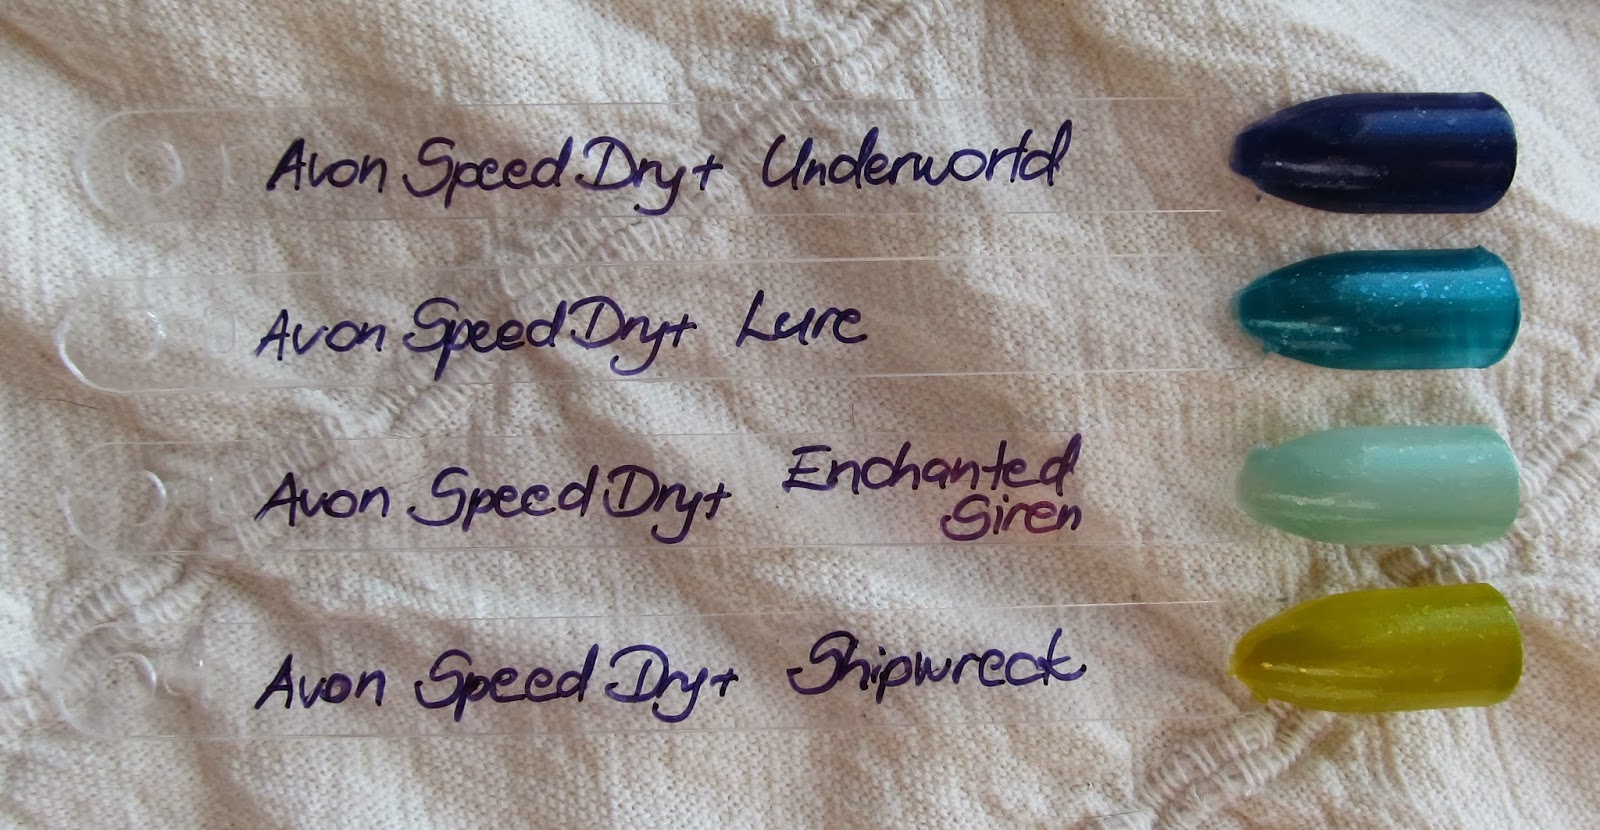 Avon Speed Dry+ Underworld
Avon Speed Dry+ Lure
Avon Speed Dry+ Enchanted
Siren
Avon Speed Dry+ Shipwreck